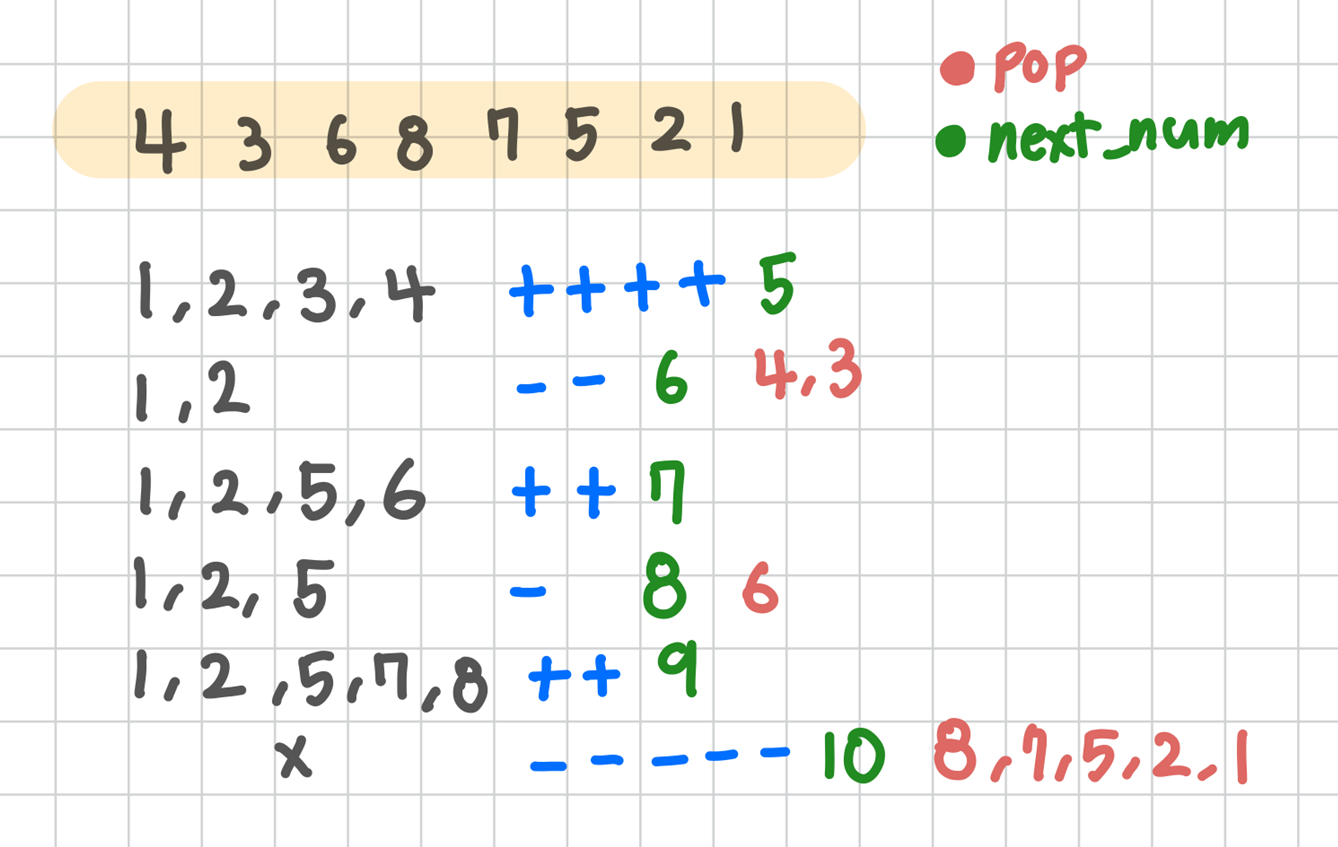 4 3 6 8 7 5 2 1
● pop
● next_num
1,2,3,4 ++++ 5
1,2 -- 6 4,3
1,2,5,6 ++ 7
1,2,5 - 8 6
1,2,5,7,8 ++ 9
x ----- 10 8,7,5,2,1